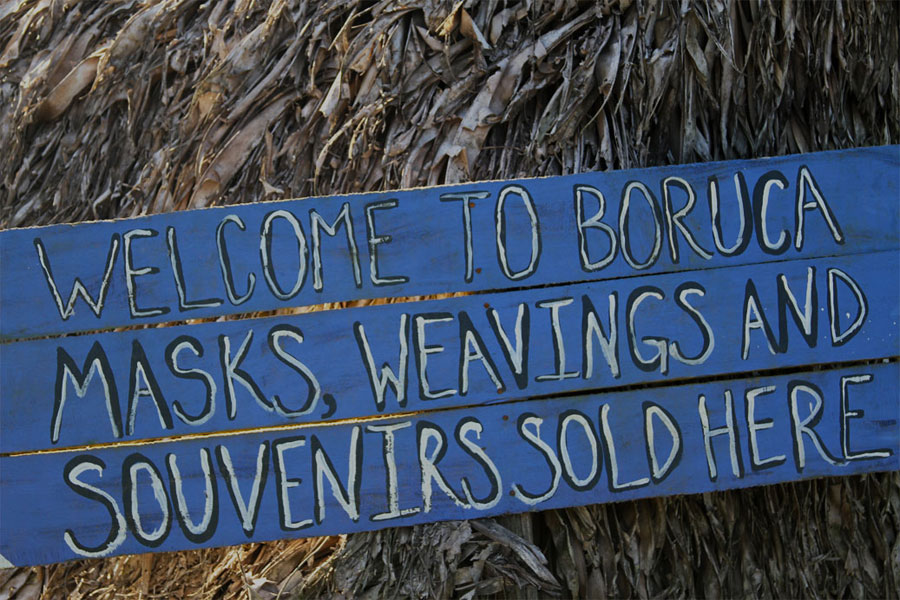 WELCOME TO BORUCA
MASKS, WEAVINGS AND
SOUVENIRS SOLD HERE